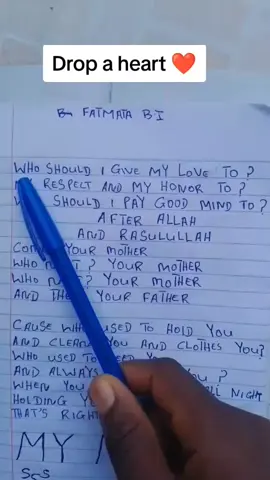 Drop a heart ❤️
FATMATA B I
WHO SHOULD I GIVE MY LOVE TO ?
RESPECT AND MY HONOR TO ?
SHOULD I PAY GOOD MIND TO ?
AFTER ALLAH
AND RASULULLAH
YOUR MOTHER
WHO YOUR MOTHER
WHO YOUR MOTHER
AND YOUR FATHER
CAUSE WHO USED TO HOLD YOU
AND CLEAN YOU AND CLOTHES YOU
WHO USED TO YOU
AND ALWAYS YOU ?
WHEN YOU NIGHT
HOLDING
THAT'S RIGHT
MY